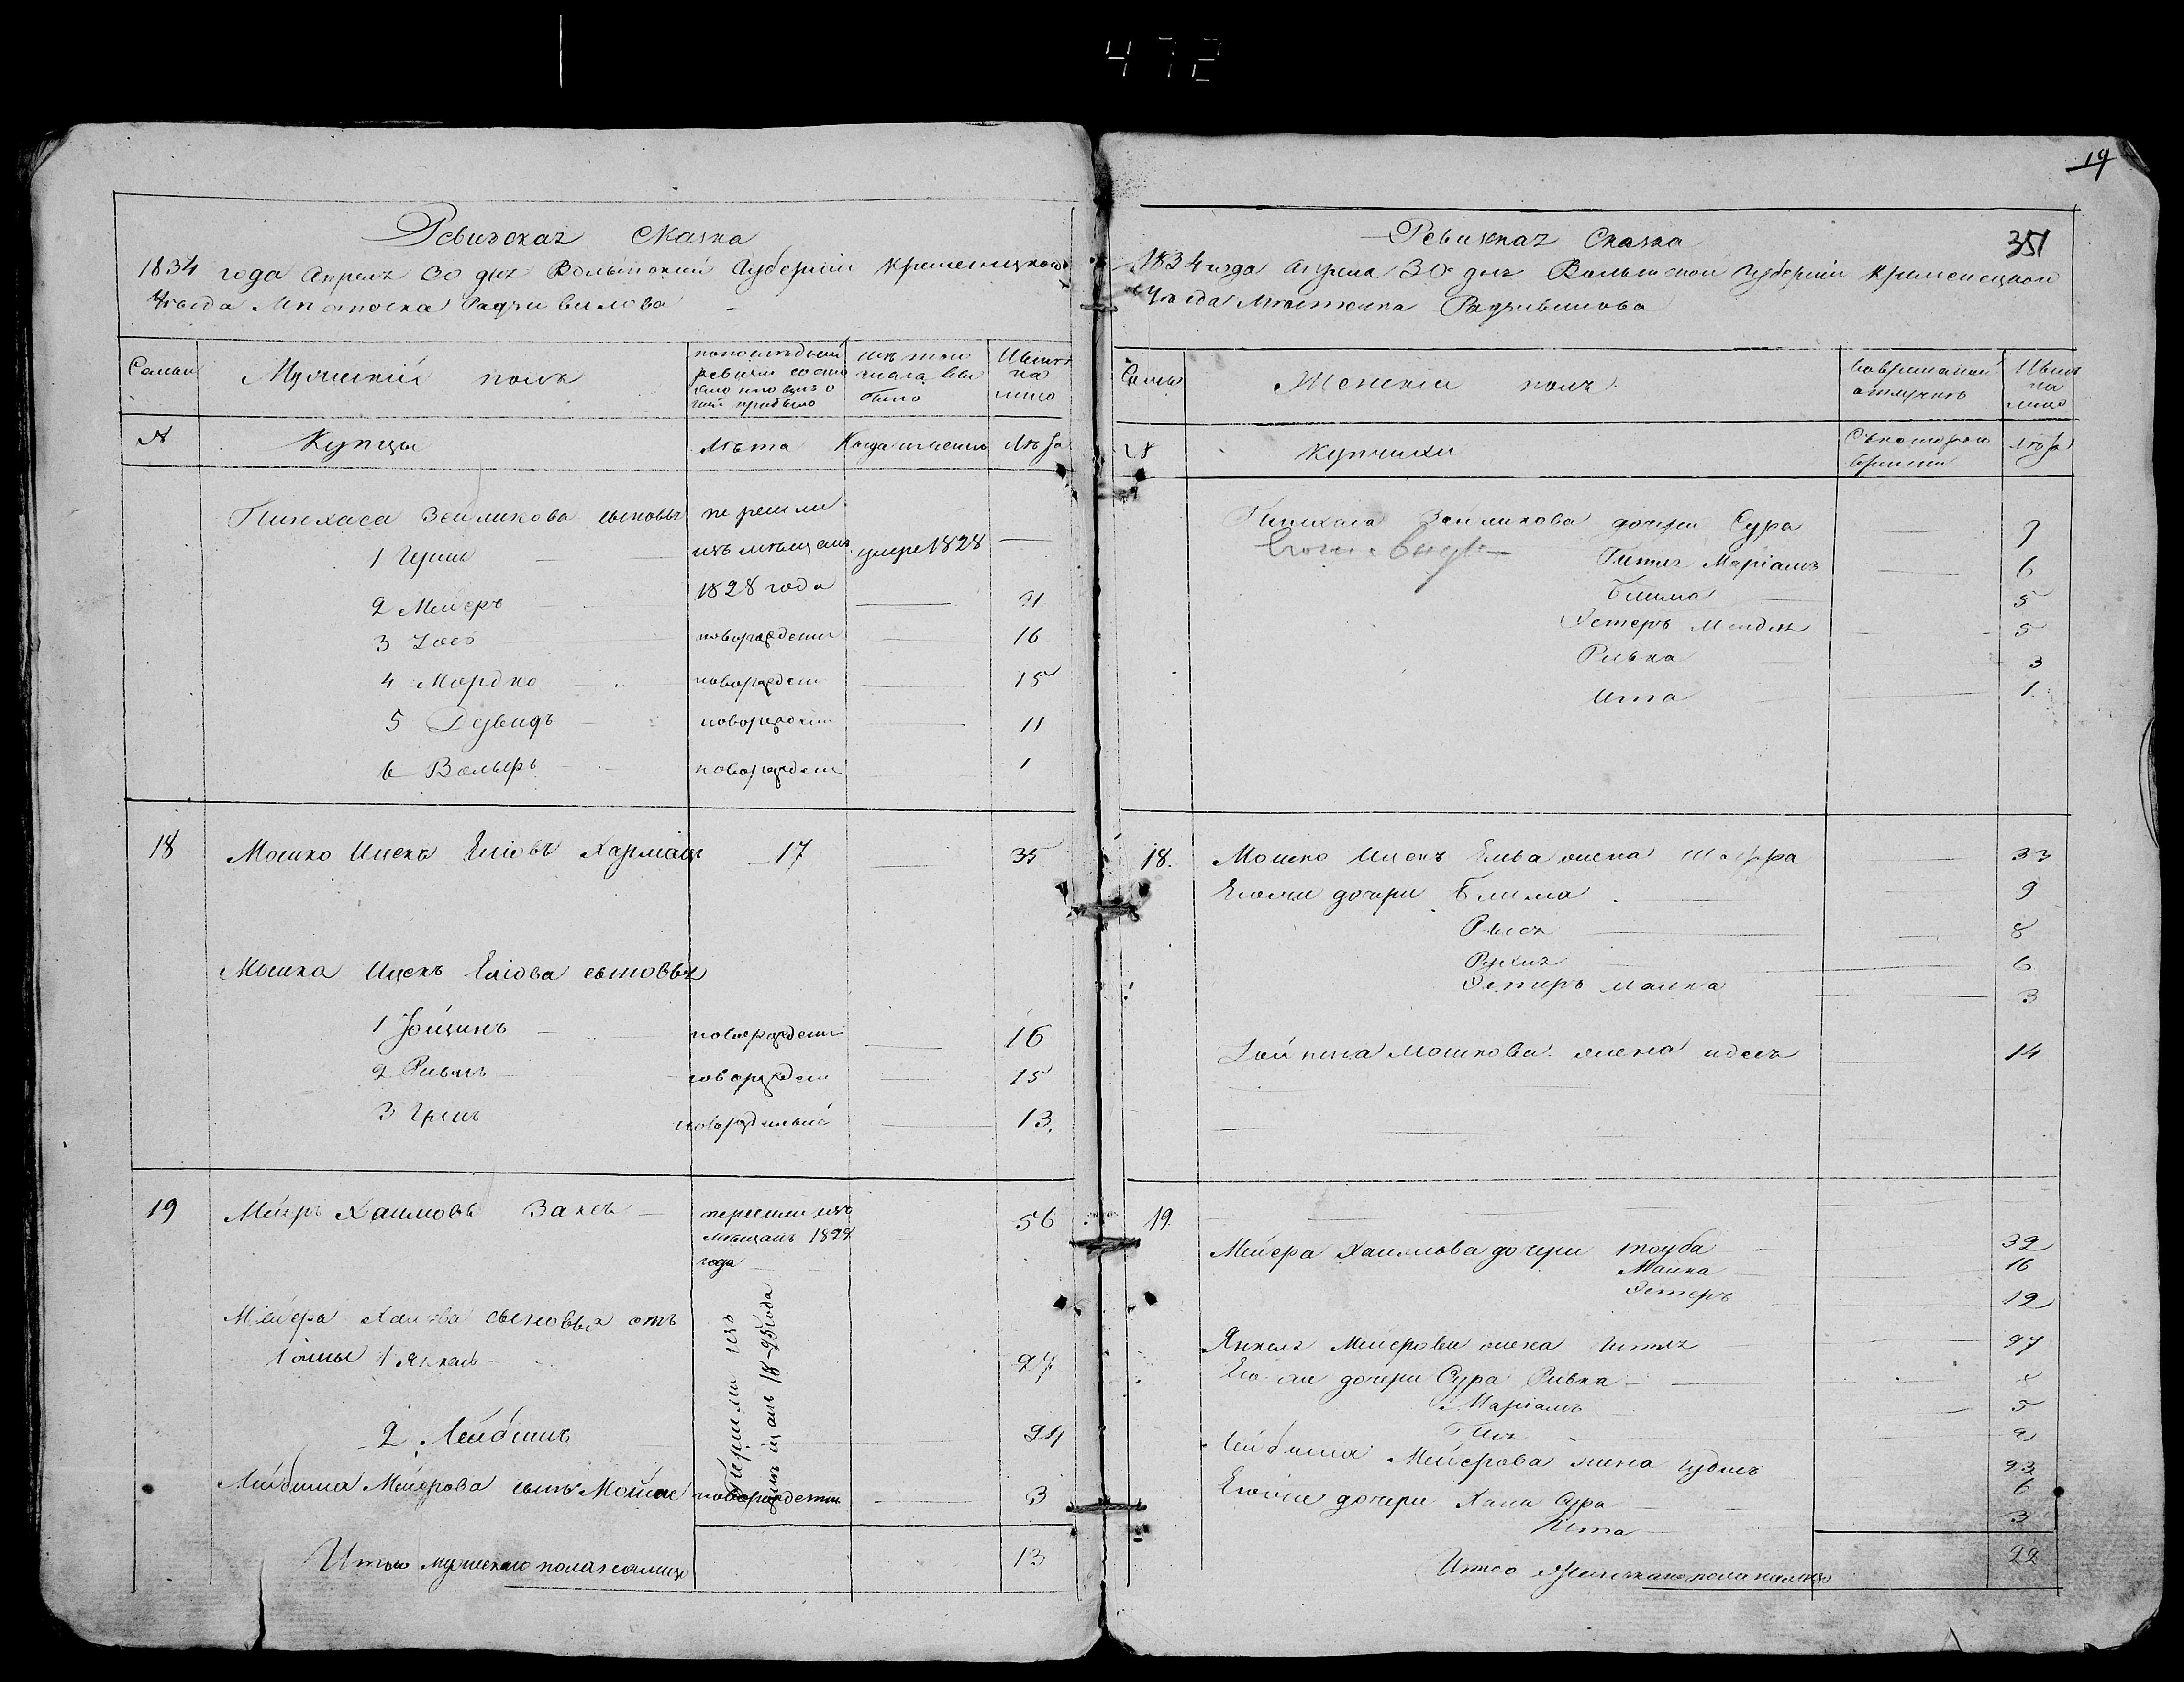 472
19
351
Ревизская Сказка
1834 года Апреля 30 дня Волынской Губернии Кременецкого
Уезда Местечка Радзивилова
Семьи
Мужеский полъ
по последней ревизии состояло и после оной прибыло
изъ того числа выбыло
Ныне на лицо
№
Купцы
Лета
Когда именно
Лета
Пинхаса Зейликова сыновья перешли
1 Герш изъ мещанъ умре 1828
2 Мейеръ 1828 года 21
3 Иось новорожден 16
4 Мордко новорожден 15
5 Дувидъ новорожден 11
6 Вольфъ новорожден 1
18 Мошко Ицекъ Еліовъ 17 35
Мошка Ицекъ Еліова сыновья
1 Іойцикъ новорожден 16
2 новорожден 15
3 Гершъ новорожденный 13.
19 Мейеръ Хаимовъ Заксъ перешли изъ 56
мещанъ 182
года
Мейера Хаимова сыновья отъ
1 жены 1 Янкель 27
2 Лейбишъ 24
Перешли изъ мещанъ 18-28 года
Лейбиша Мейерова сынъ Мойше новорожденны 3
Итого мужескаго пола на лицо 13
Ревизская Сказка
1834 года Апреля 30 дня Волынской Губерніи Кременецкой
Уезда Местечка Радзивилова
Семьи
Женскій полъ
Во временной отлучке
Ныне на лицо
№
Купчихи
Съ котораго времени
Лета
Пинхаса Зейликова дочери Сура 9
Гитля Маріамъ 6
Блима 5
Эстеръ Мендля 5
Ривка 3
Ита 1
18. Мошко Ицекъ Ельва жена 33
Его же дочери Блима 9
Рися 8
Рухля 6
Эстеръ малка 3
Мошкова жена идесъ 14
19
Мейера Хаимова дочери тоуба 32
Малка 16
Эстеръ 12
Янкеля Мейерова жена Гитля 27
Его же дочери Сура Ривка
Маріамъ 5
2
Лейбиша Мейерова жена Гудесъ 23
Его же дочери Хана Сура 6
Ита 3
Итого женскаго пола на лицо 22